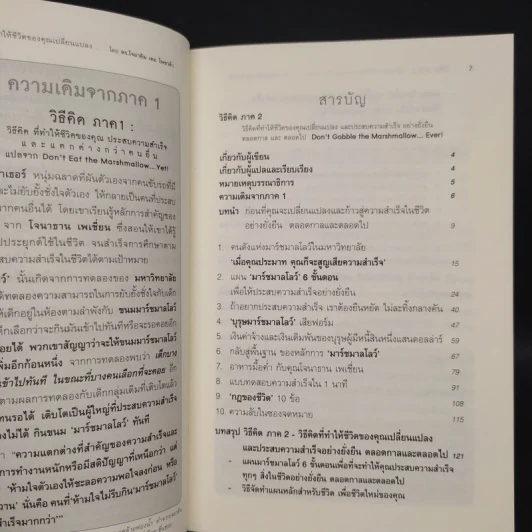 ทำให้ชีวิตของคุณเปลี่ยนแปลง ... โดย ดร.โจอาคิม เดอ โพซาด้า
ความเดิมจากภาค 1
วิธีคิด ภาค1 :
วิธีคิด ที่ทำให้ชีวิตของคุณ ประสบความสำเร็จ
และแตกต่างกว่าคนอื่น
แปลจาก Don't Eat the Marshmallow...Yet!
หนุ่มฉลาดที่ผันตัวเองจากคนขับรถที่มี
และไม่ยับยั้งชั่งใจตัวเอง ให้กลายเป็นคนที่ประสบ
จากคนอื่นได้ โดยเขาเรียนรู้หลักการสำคัญของ
จาก โจนาธาน เพเชี่ยน ซึ่งสอนให้เขาได้รู้
ประยุกต์ใช้ในชีวิต จนสำเร็จการศึกษาตาม
ประสบความสำเร็จในชีวิตได้ตามเป้าหมาย
นั้นเกิดจากการทดลองของ มหาวิทยาลัย
ได้ทดลองความสามารถในการยับยั้งชั่งใจกับเด็ก
ให้เด็กอยู่ในห้องตามลำพังกับ ขนมมาร์ชมาลโลว์
เด็กเลือกว่าจะกินมันเข้าไปทันทีหรือจะรอคอยอีก
คอยได้ พวกเขาสัญญาว่าจะให้ขนมมาร์ชมาลโลว์
เพิ่มอีกก้อนหนึ่ง จากการทดลองพบว่า เด็กบาง
เข้าไปทันที ในขณะที่บางคนเลือกที่จะคอย อีก
ตามผลการทดลองกับเด็กกลุ่มเดิมที่เติบโตแล้ว
ทนรอได้ เติบโตเป็นผู้ใหญ่ที่ประสบความสำเร็จ
ไม่ได้ กินขนม 'มาร์ชมาลโลว์' ทันที
ว่า "ความแตกต่างที่สำคัญของความสำเร็จและ
การทำงานหนักหรือมีสติปัญญาที่เหนือกว่า แต่
'ห้ามใจตัวเองให้ชะลอความพอใจลงก่อน หรือ
นั่นคือ คนที่ห้ามใจไม่รีบกิน'มาร์ชมาลโลว์'
สำเร็จมากกว่า"
7
สารบัญ
วิธีคิด ภาค 2
วิธีคิดที่ทำให้ชีวิตของคุณเปลี่ยนแปลง และประสบความสำเร็จ อย่างยั่งยืน
ตลอดกาล และ ตลอดไป Don't Gobble the Marshmallow... Ever!
เกี่ยวกับผู้เขียน 4
เกี่ยวกับผู้แปลและเรียบเรียง 4
หมายเหตุบรรณาธิการ 5
ความเดิมจากภาค 1 6
บทนำ ก่อนที่คุณจะเปลี่ยนแปลงและก้าวสู่ความสำเร็จในชีวิต
อย่างยั่งยืน ตลอดกาลและตลอดไป 9
1. คนดังแห่งมาร์ชมาลโลว์ในมหาวิทยาลัย
'เมื่อคุณประมาท คุณก็จะสูญเสียความสำเร็จ' 15
2. แผน 'มาร์ชมาลโลว์' 6 ขั้นตอน
เพื่อให้ประสบความสำเร็จอย่างยั่งยืน 24
3. ถ้าอยากประสบความสำเร็จ เราต้องยืนหยัด ไม่ละทิ้งกลางคัน
4. 'บุรุษมาร์ชมาลโลว์' เสียฟอร์ม
5. เงินค่าจ้างและเงินเดิมพันของบุรุษผู้มีหนี้สินหนึ่งแสนดอลล่าร์
6. กลับสู่พื้นฐาน ของหลักการ 'มาร์ชมาลโลว์'
7. อาหารมื้อค่ำ กับคุณโจนาธาน เพเชี่ยน
8. แบบทดสอบความสำเร็จใน 1 นาที
9. 'กฎของชีวิต' 10 ข้อ
10. ความลับในซองจดหมาย 115
บทสรุป วิธีคิด ภาค 2 - วิธีคิดที่ทำให้ชีวิตของคุณเปลี่ยนแปลง
และประสบความสำเร็จอย่างยั่งยืน ตลอดกาลและตลอดไป 121
- แผนมาร์ชมาลโลว์ 6 ขั้นตอนเพื่อที่จะทำให้คุณประสบความสำเร็จ
ทุกๆ สิ่งในชีวิตอย่างยั่งยืน ตลอดกาลและตลอดไป
- วิธีจัดทำแผนหลักสำหรับชีวิต เพื่อชีวิตใหม่ของคุณ